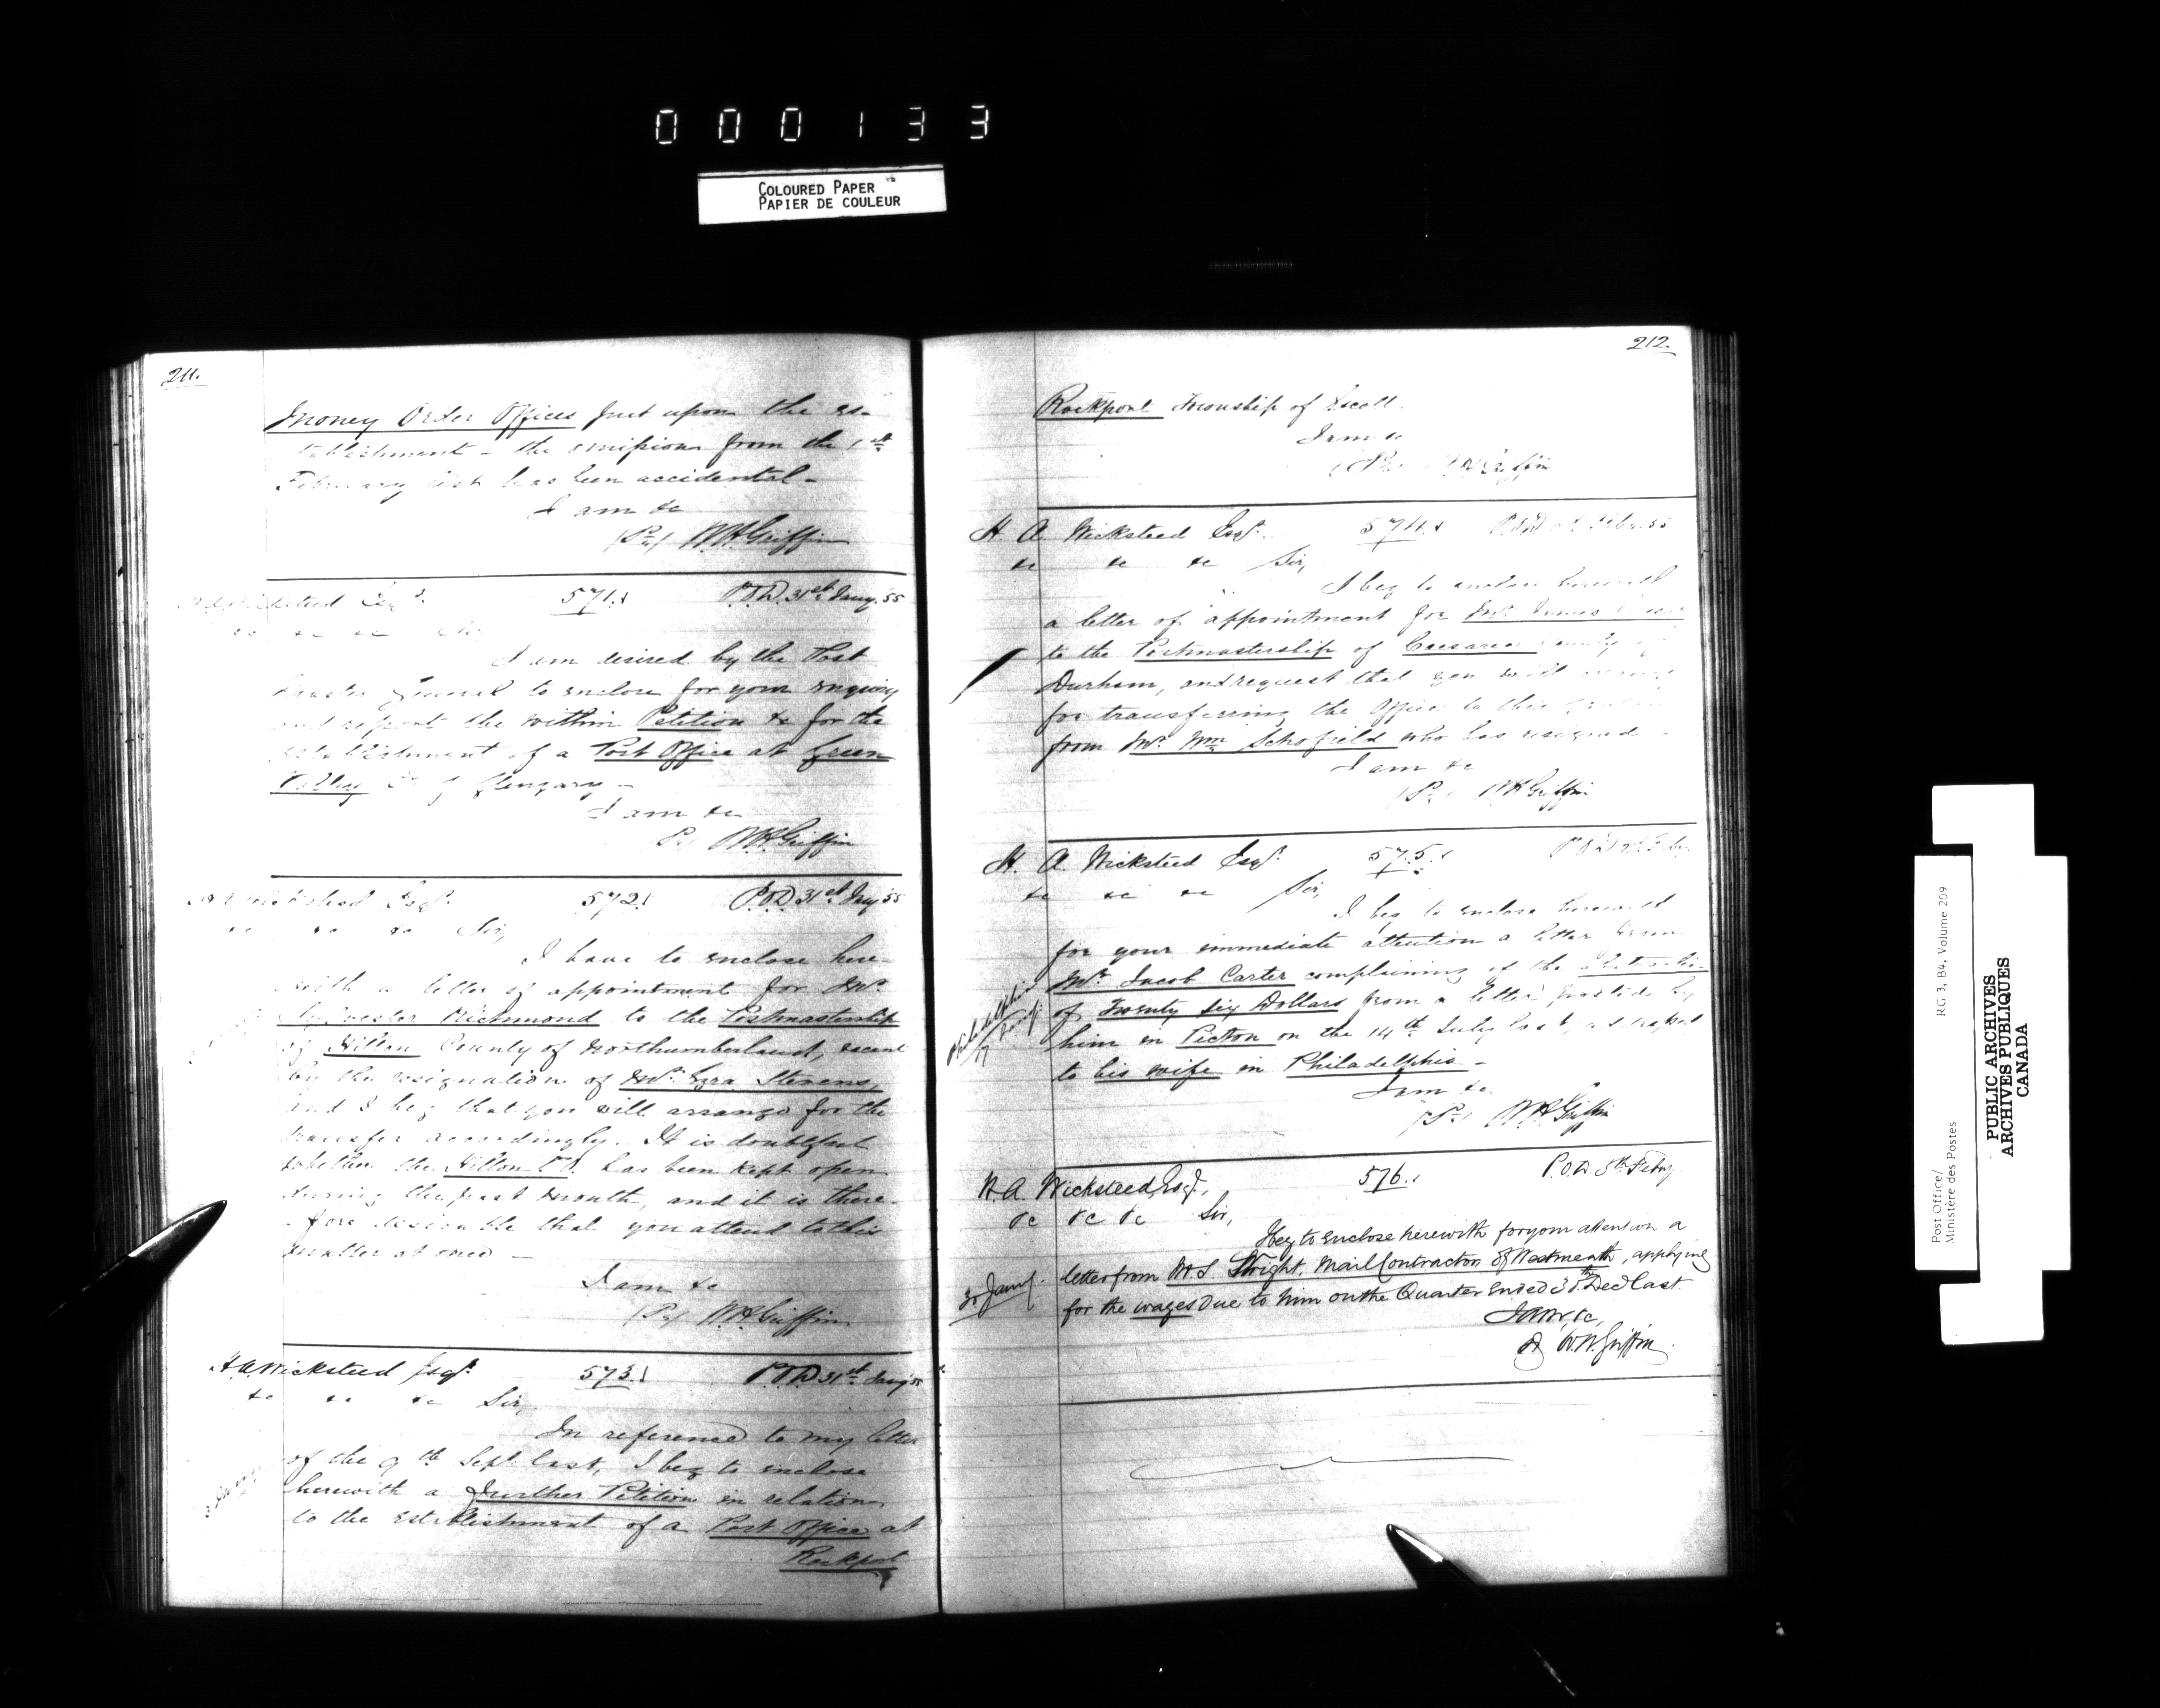 000133
COLOURED PAPER
PAPIER DE COULEUR
211.
Money Order Offices just upon the es-
tablishment - the omission from the 1st
February list has been accidental -
I am &c
W H Griffin
Wicksteed Esqr. 571. P.O.D. 31st Jany. '55
&c &c Sir,
I am desired by the Post
Master General to enclose for your enquiry
and report the within Petition &c for the
establishment of a Post Office at Green
Valley Co. of Glengary -
I am &c
W H Griffin
Wicksteed Esqr. 572. P.O.D. 31st Jany '55
&c &c &c Sir,
I have to enclose here-
with a letter of appointment for Mr.
Sylvester Richmond to the Postmastership
of Hilton County of Northumberland, vacant
by the resignation of Mr. Ezra Stevens,
and I beg that you will arrange for the
transfer accordingly. It is doubtful
whether the Hilton P.O. has been kept open
during the past month, and it is there-
fore desirable that you attend to this
matter at once -
I am &c
W H Griffin
H A Wicksteed Esqr. 573. P.O.D. 31st Jany '55
&c &c &c Sir,
In reference to my letter
of the 9th Sept. last, I beg to enclose
herewith a further Petition in relation
to the establishment of a Post Office at
Rockport
212.
Rockport Township of Escott.
I am &c
W H Griffin
H A Wicksteed Esqr. 574. P.O.D. Feby. 55
&c &c &c Sir,
I beg to enclose herewith
a letter of appointment for Mr. James
to the Postmastership of Caesarea County of
Durham, and request that you will
for transferring the Office to this
from Mr. Wm Schofield who has resigned -
I am &c
W H Griffin
H. A. Wicksteed Esqr. 575. P.O.D. Feby.
&c &c &c Sir,
I beg to enclose herewith
for your immediate attention a letter from
Mr. Jacob Carter complaining of the abstraction
of Twenty six Dollars from a letter posted by
him in Picton on the 14th July last, addressed
to his wife in Philadelphia -
Philadelphia
17
I am &c
W H Griffin
H. A. Wicksteed, Esqr., 576. P.O.D. 5th Feby
&c &c &c Sir,
I beg to enclose herewith for your attention a
letter from M. S. Wright, Mail Contractor of Westmeath, applying
for the wages due to him on the Quarter ended 31st Dec last.
Jany.
I am, &c,
W. H. Griffin
Post Office/
Ministère des Postes
RG 3, B4, Volume 209
PUBLIC ARCHIVES
ARCHIVES PUBLIQUES
CANADA